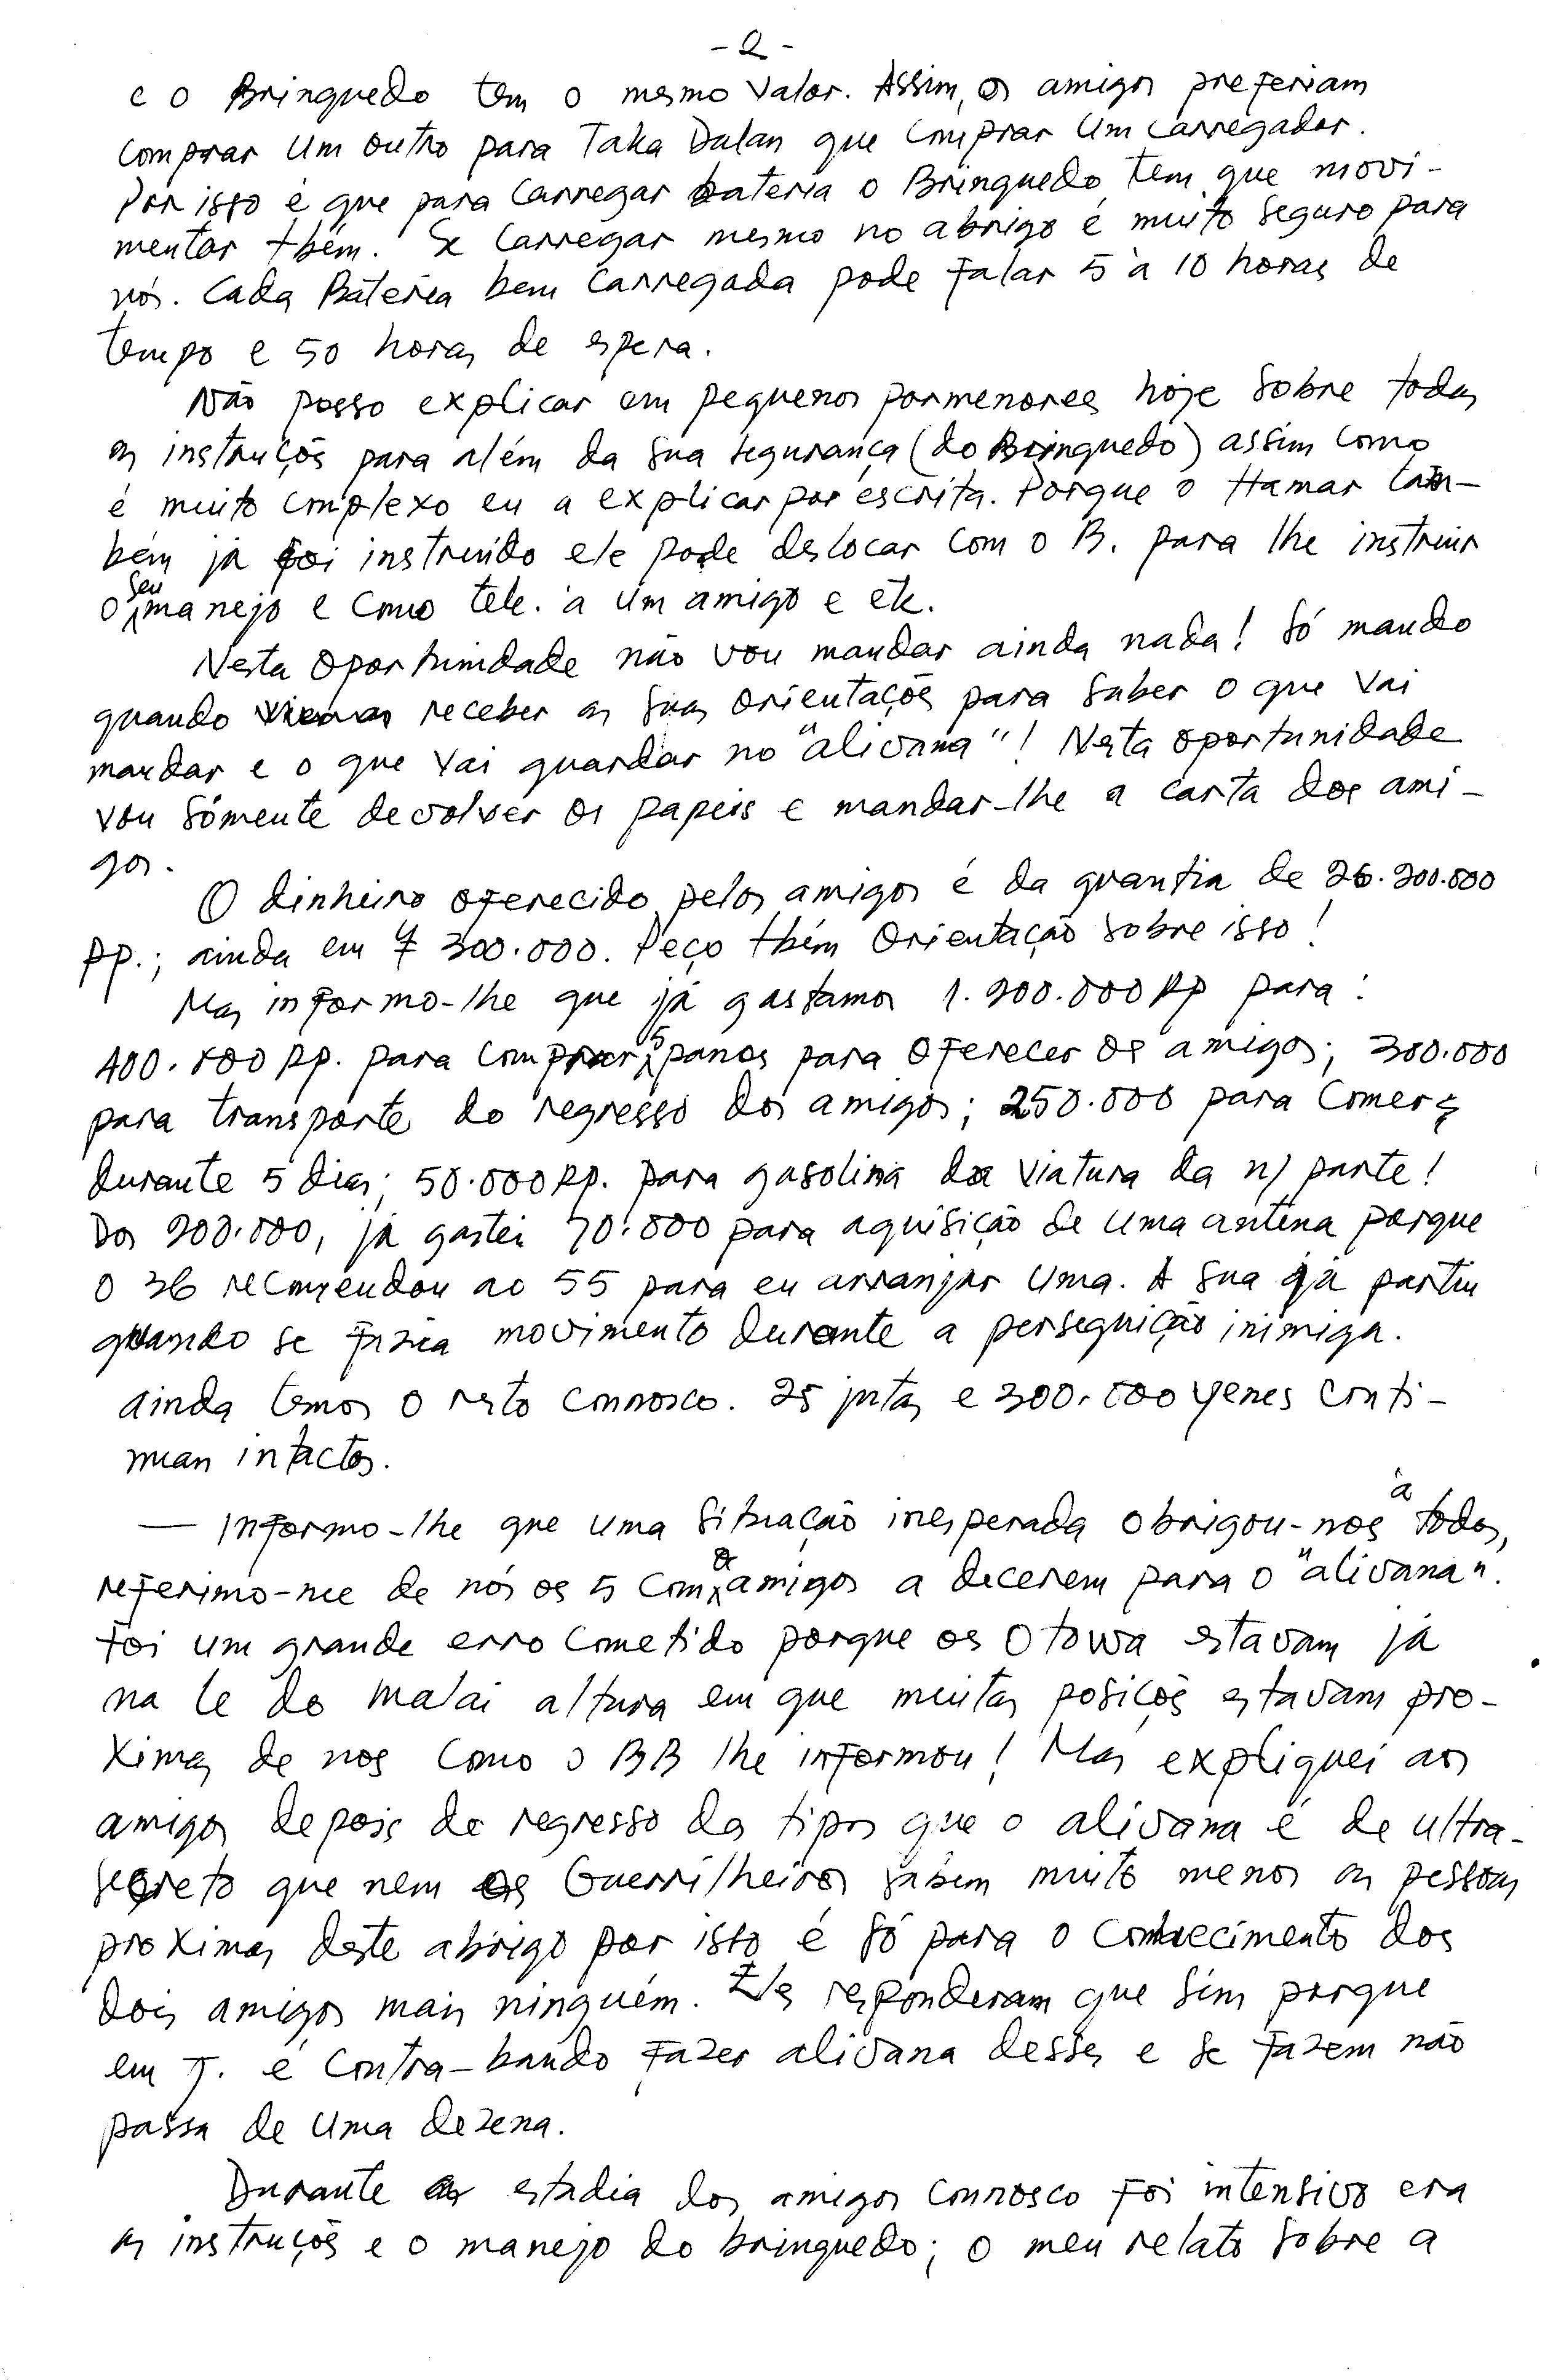 - 2 -
e o Brinquedo tem o mesmo valor. Assim, os amigos preferiam
comprar um outro para Taka Dalan que comprar um carregador.
Por isso é que para carregar bateria o Brinquedo tem que movi-
mentar tbém. Se carregar mesmo no abrigo é muito seguro para
nós. Cada Bateria bem carregada pode falar 5 à 10 horas de
tempo e 50 horas de espera.
Não posso explicar em pequenos pormenores hoje sobre todas
as instruçõs para além da sua segurança (do Brinquedo) assim como
é muito complexo eu a explicar por escrita. Porque o Hamar tam-
bém já foi instruido ele pode deslocar com o B. para lhe instruir
o seu manejo e como tele. a um amigo e etc.
Nesta oportunidade não vou mandar ainda nada! Só mando
quando receber as suas orientaçõs para saber o que vai
mandar e o que vai guardar no "alivana"! Nesta oportunidade
vou sómente devolver os papeis e mandar-lhe a carta dos ami-
gos.
O dinheiro oferecido pelos amigos é da quantia de 26.200.000
Rp.; ainda em ¥ 300.000. Peço tbém orientação sobre isso!
Mas informo-lhe que já gastamos 1.200.000 Rp para:
400.000 Rp. para comprar 5 panos para oferecer os amigos; 300.000
para transporte do regresso dos amigos; 250.000 para comer
durante 5 dias; 50.000 Rp. para gasolina da viatura da n/ parte!
Dos 200.000, já gastei 70.000 para aquisição de uma antena porque
o 36 recomendou ao 55 para eu arranjar uma. A sua já partiu
quando se fazia movimento durante a perseguição inimiga.
ainda temos o resto connosco. 25 jutas e 300.000 yenes conti-
nuan intactos.
— Informo-lhe que uma situação inesperada obrigou-nos à todos,
referimo-me de nós os 5 com os amigos a decerem para o "alivana".
Foi um grande erro cometido porque os Otowa estavam já
na le do malai altura em que muitas posiçõs estavam pro-
ximas de nos como o BB lhe informou! Mas expliquei aos
amigos depois de regresso dos tipos que o alivana é de ultra-
segreto que nem os Guerrilheiros sabem muito menos as pessoas
proximas deste abrigo por isto é só para o conhecimento dos
dois amigos mais ninguém. Eles responderam que sim porque
em J. é contra-bando fazer alivana desses e se fazem não
passa de uma dezena.
Durante a estadia dos amigos connosco foi intensivo era
as instruçõs e o manejo do brinquedo; o meu relato sobre a